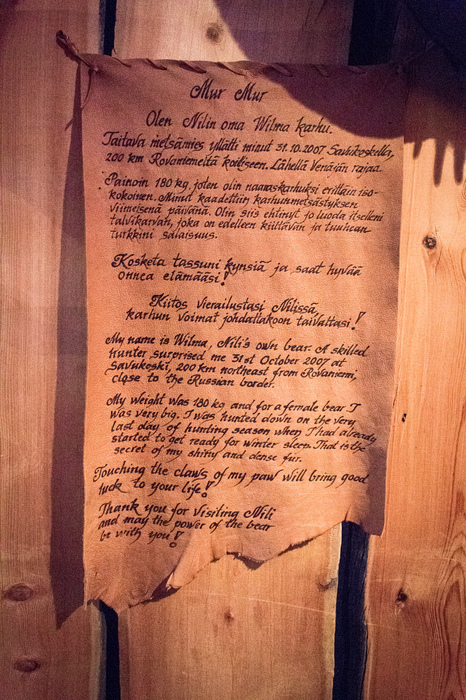 Mur Mur
Olen Nilin oma Wilma karhu.
Taitava metsämies yllätti minut 31.10.2007 Savukoskella,
200 km Rovaniemeltä koilliseen. Lähellä Venäjän rajaa.
Painoin 180 kg, joten olin naaraskarhuksi erittäin iso-
kokoinen. Minut kaadettiin karhunmetsästyksen
viimeisenä päivänä. Olin siis ehtinyt jo luoda itselleni
talvikarvan, joka on edelleen kiiltävän ja tuuhean
turkkini salaisuus.
Kosketa tassuni kynsiä ja saat hyvää
onnea elämääsi!
Kiitos vierailustasi Nilissä,
karhun voimat johdattakoon taivaltasi!
My name is Wilma, Nili's own bear. A skilled
hunter surprised me 31st October 2007 at
Savukoski, 200 km northeast from Rovaniemi,
close to the Russian border.
My weight was 180 kg and for a female bear I
was very big. I was hunted down on the very
last day of hunting season when I had already
started to get ready for winter sleep. That is the
secret of my shiny and dense fur.
Touching the claws of my paw will bring good
luck to your life!
Thank you for visiting Nili
and may the power of the bear
be with you!